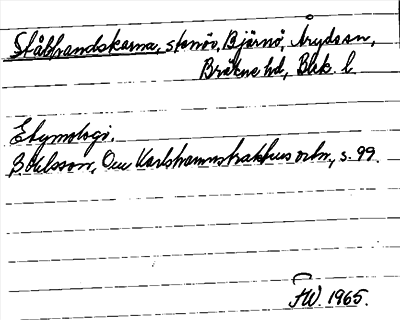 Stålbrandskarna, stenör, Björnö, Åryds sn,
Bräkne hd, Blek. l.
Etymologi.
B Ohlsson, Om Karlshamnstrakthus orln, s. 99.
FW. 1965.